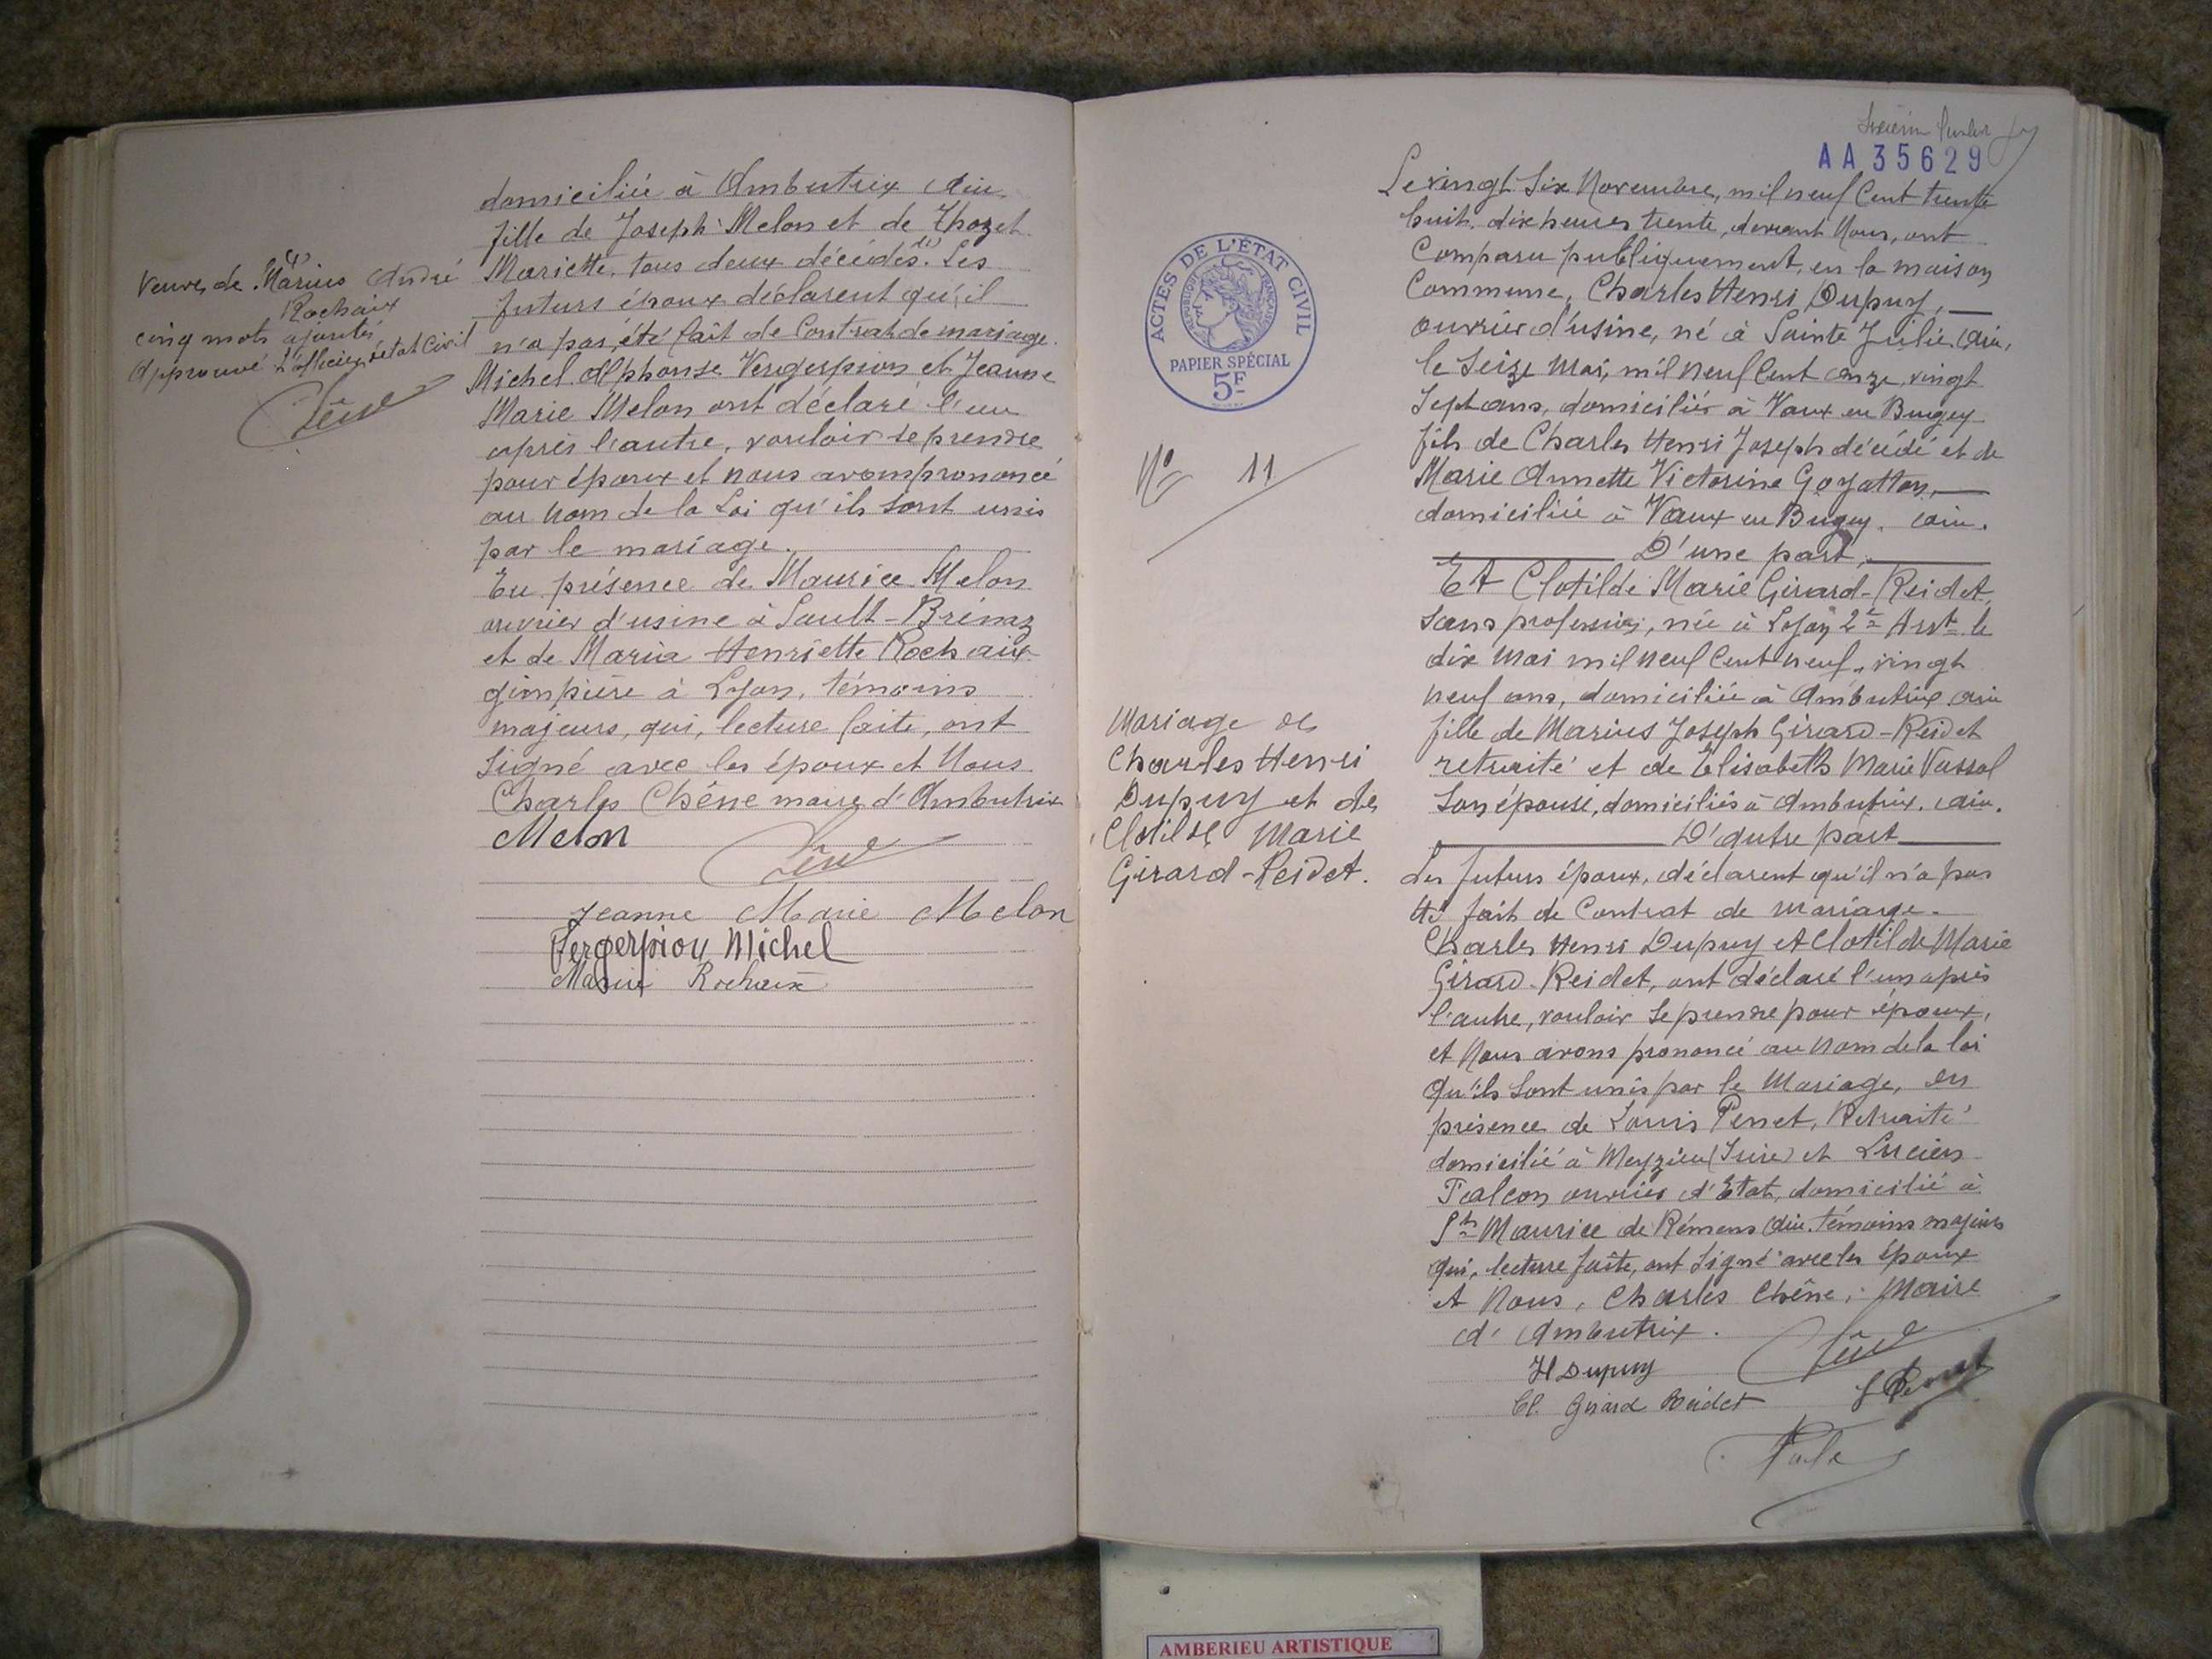 domiciliée à Ambutrix Ain
fille de Joseph Melon et de Thozet
Mariette, tous deux décédés. (1) Les
futurs époux déclarent qu'il
n'a pas été fait de Contrat de mariage.
Michel Alphonse Vergerpiou et Jeanne
Marie Melon ont déclaré l'un
après l'autre, vouloir se prendre
pour époux et nous avons prononcé
au nom de la Loi qu'ils sont unis
par le mariage.
En présence de Maurice Melon
ouvrier d'usine à Sault-Brénaz
et de Maria Henriette Rochaix
gimpière à Lyon, témoins
majeurs, qui, lecture faite, ont
signé avec les époux et Nous
Charles Chêne maire d'Ambutrix
Melon
Chêne
Jeanne Marie Melon
Vergerpiou Michel
Maria Rochaix
(1)
Veuve de Marius André
Rochaix
cinq mots ajoutés
Approuvé L'officier état Civil
Chêne
AA35629
ACTES DE L'ÉTAT CIVIL
RÉPUBLIQUE FRANÇAISE
PAPIER SPÉCIAL
5F
N° 11
Mariage de
Charles Henri
Dupuy et de
Clotilde Marie
Girard-Reidet.
Le vingt six Novembre, mil neuf Cent trente
huit, dix heures trente, devant Nous, ont
Comparu publiquement, en la maison
Commune, Charles Henri Dupuy,
ouvrier d'usine, né à Sainte Julie, Ain,
le seize Mai, mil neuf Cent onze, vingt
sept ans, domicilié à Vaux en Bugey
fils de Charles Henri Joseph décédé et de
Marie Annette Victorine Goyatton,
domiciliée à Vaux en Bugey, Ain.
D'une part,
Et Clotilde Marie Girard-Reidet,
sans profession, née à Lyon 2e Arrt le
dix Mai mil neuf Cent neuf, vingt
neuf ans, domiciliée à Ambutrix Ain
fille de Marius Joseph Girard-Reidet
retraité et de Elisabeth Marie Vassal
son épouse, domiciliés à Ambutrix, Ain.
D'autre part
Les futurs époux, déclarent qu'il n'a pas
été fait de Contrat de mariage.
Charles Henri Dupuy et Clotilde Marie
Girard-Reidet, ont déclaré l'un après
l'autre, vouloir se prendre pour époux,
et Nous avons prononcé au nom de la loi
qu'ils sont unis par le Mariage, en
présence de Louis Penet, Retraité
domicilié à Meyzieu (Isère) et Lucien
Falcon ouvrier d'Etat, domicilié à
St Maurice de Rémens Ain. témoins majeurs
qui, lecture faite, ont signé avec les époux
et Nous, Charles Chêne, Maire
d'Ambutrix.
Chêne
H Dupuy
Cl. Girard Reidet
AMBERIEU ARTISTIQUE